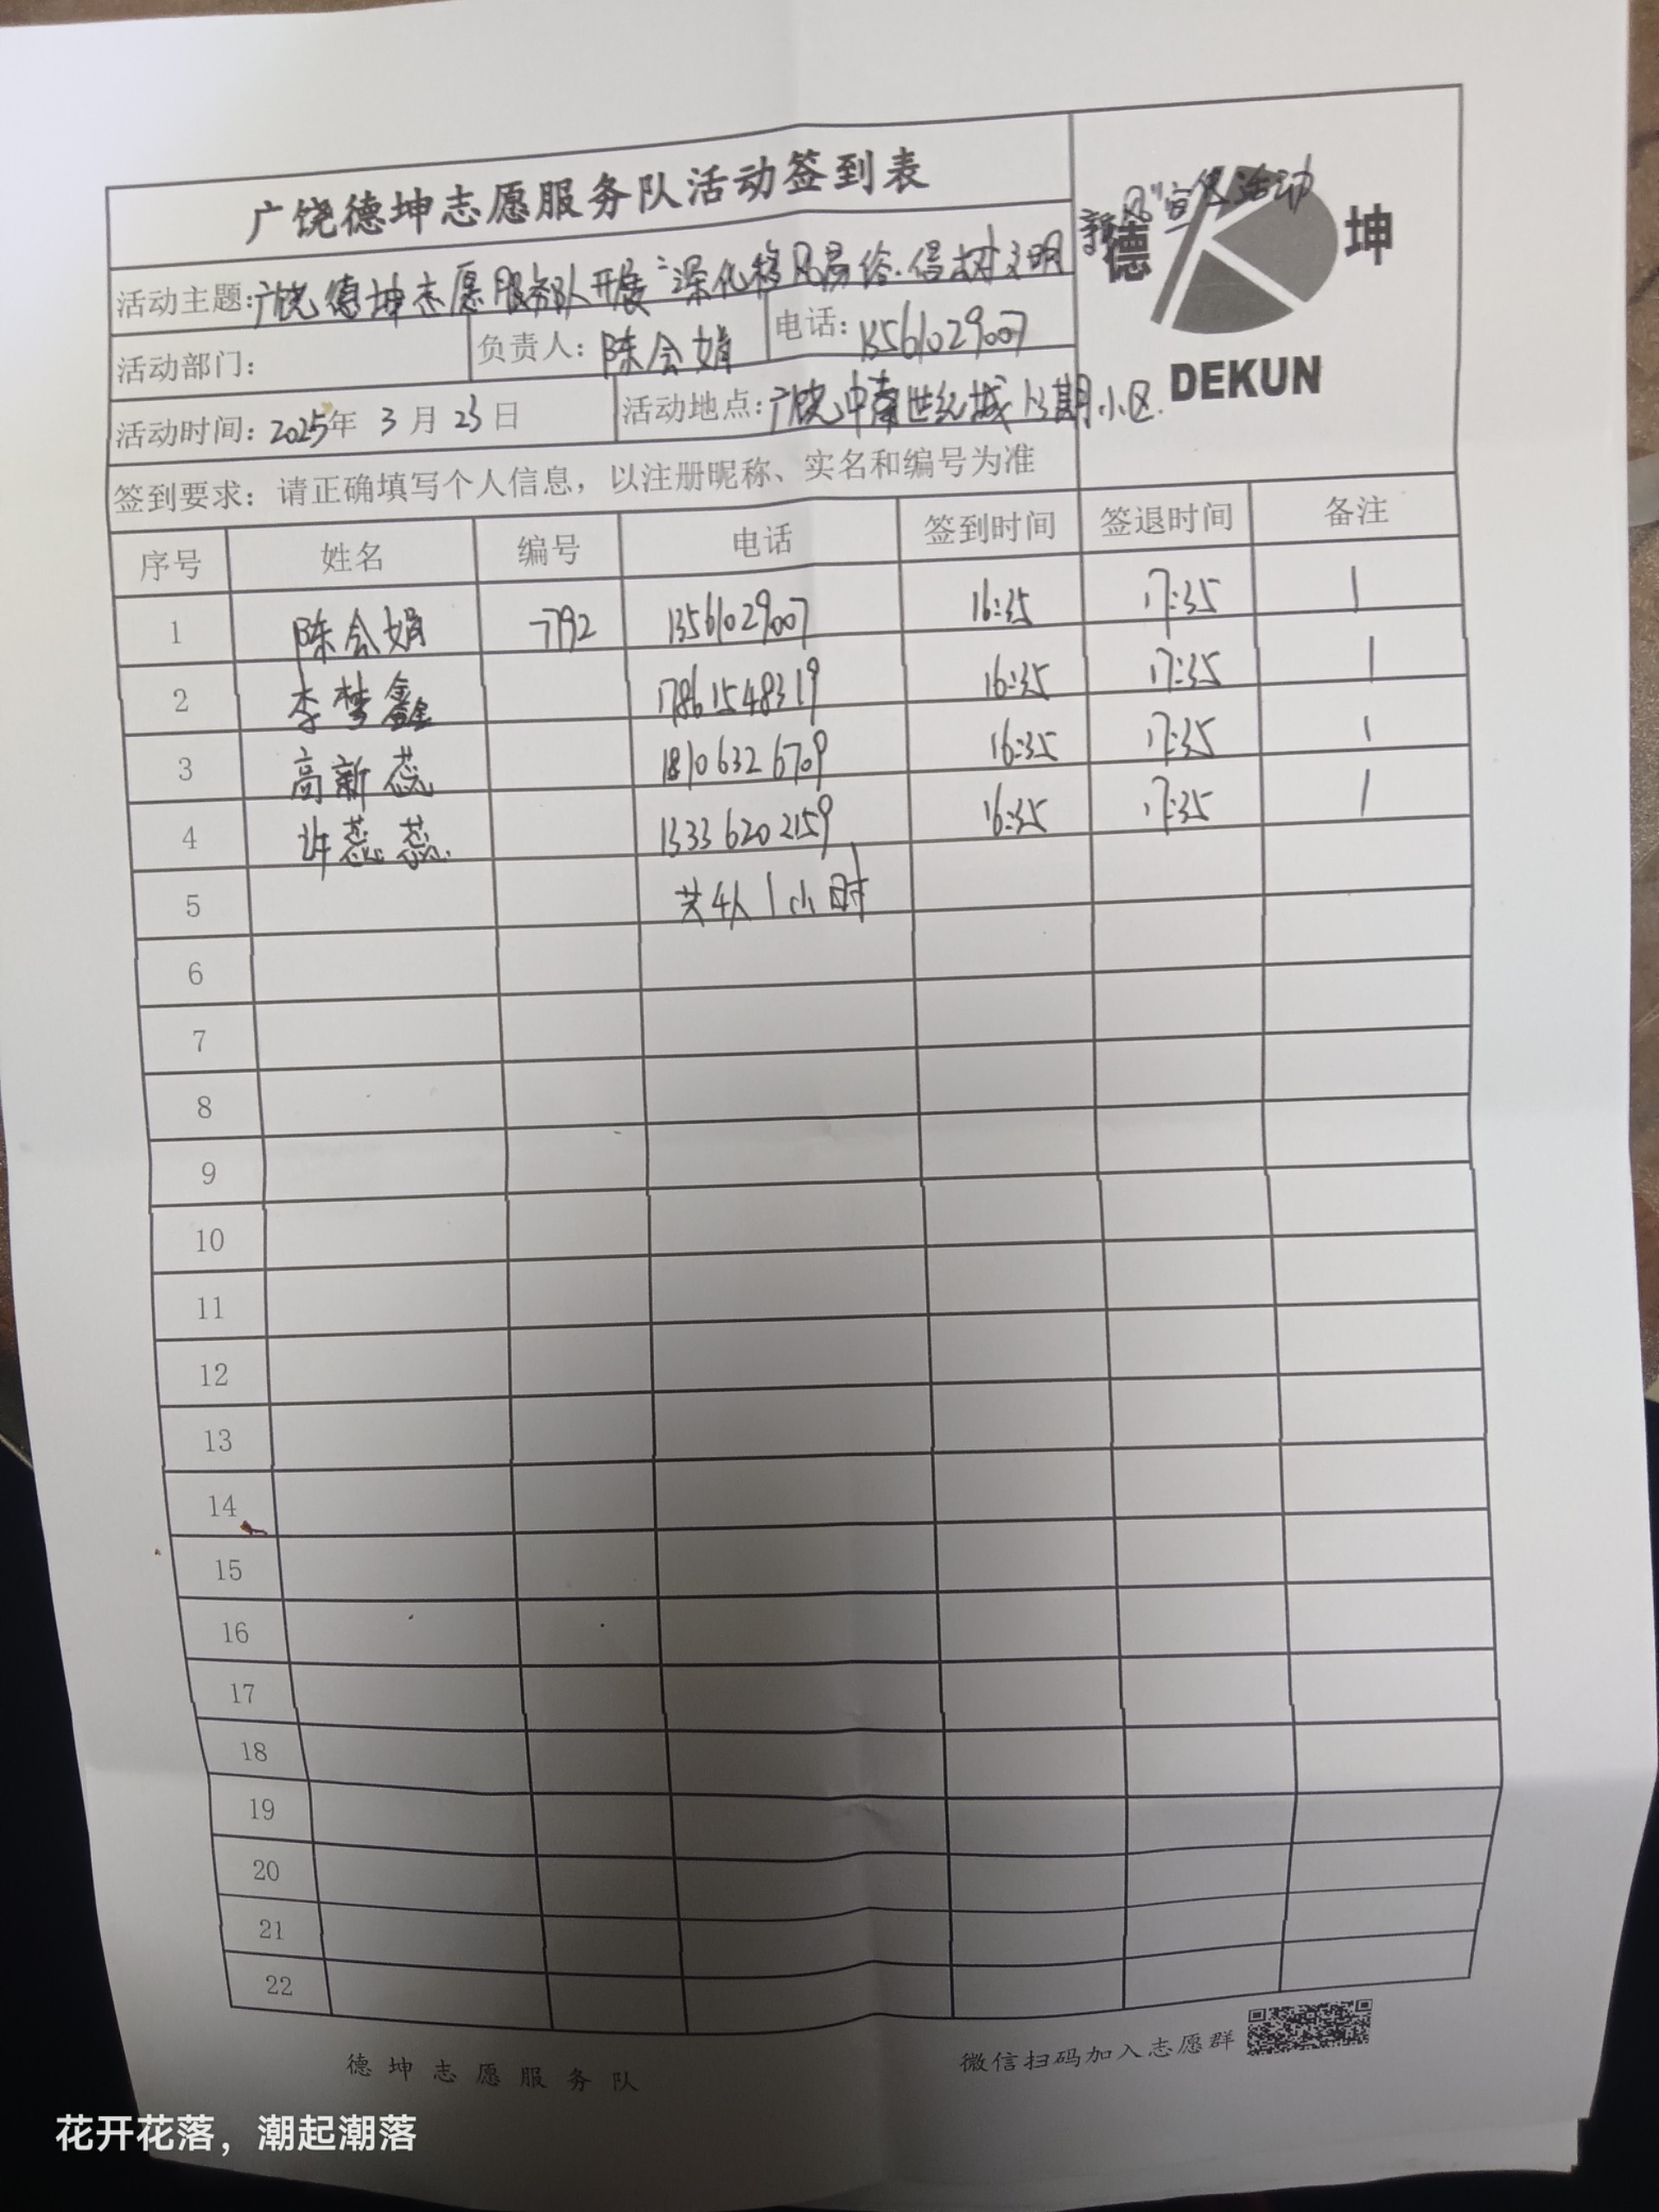 广饶德坤志愿服务队活动签到表
活动主题:广饶德坤志愿服务队开展"深化移风易俗.倡树文明
新风"宣传活动
德 坤
DEKUN
活动部门: 负责人: 陈会娟 电话: 13561029007
活动时间: 2025年 3 月 23 日 活动地点: 广饶中南世纪城 1.3期小区.
签到要求: 请正确填写个人信息, 以注册昵称、实名和编号为准
序号 姓名 编号 电话 签到时间 签退时间 备注
1 陈会娟 7792 13561029007 16:35 17:35 1
2 李梦鑫 17861548319 16:35 17:35 1
3 高新蕊 18106326709 16:35 17:35 1
4 许蕊蕊. 13336202159 16:35 17:35 1
5 共4人1小时
6
7
8
9
10
11
12
13
14
15
16
17
18
19
20
21
22
德坤志愿服务队 微信扫码加入志愿群
花开花落，潮起潮落